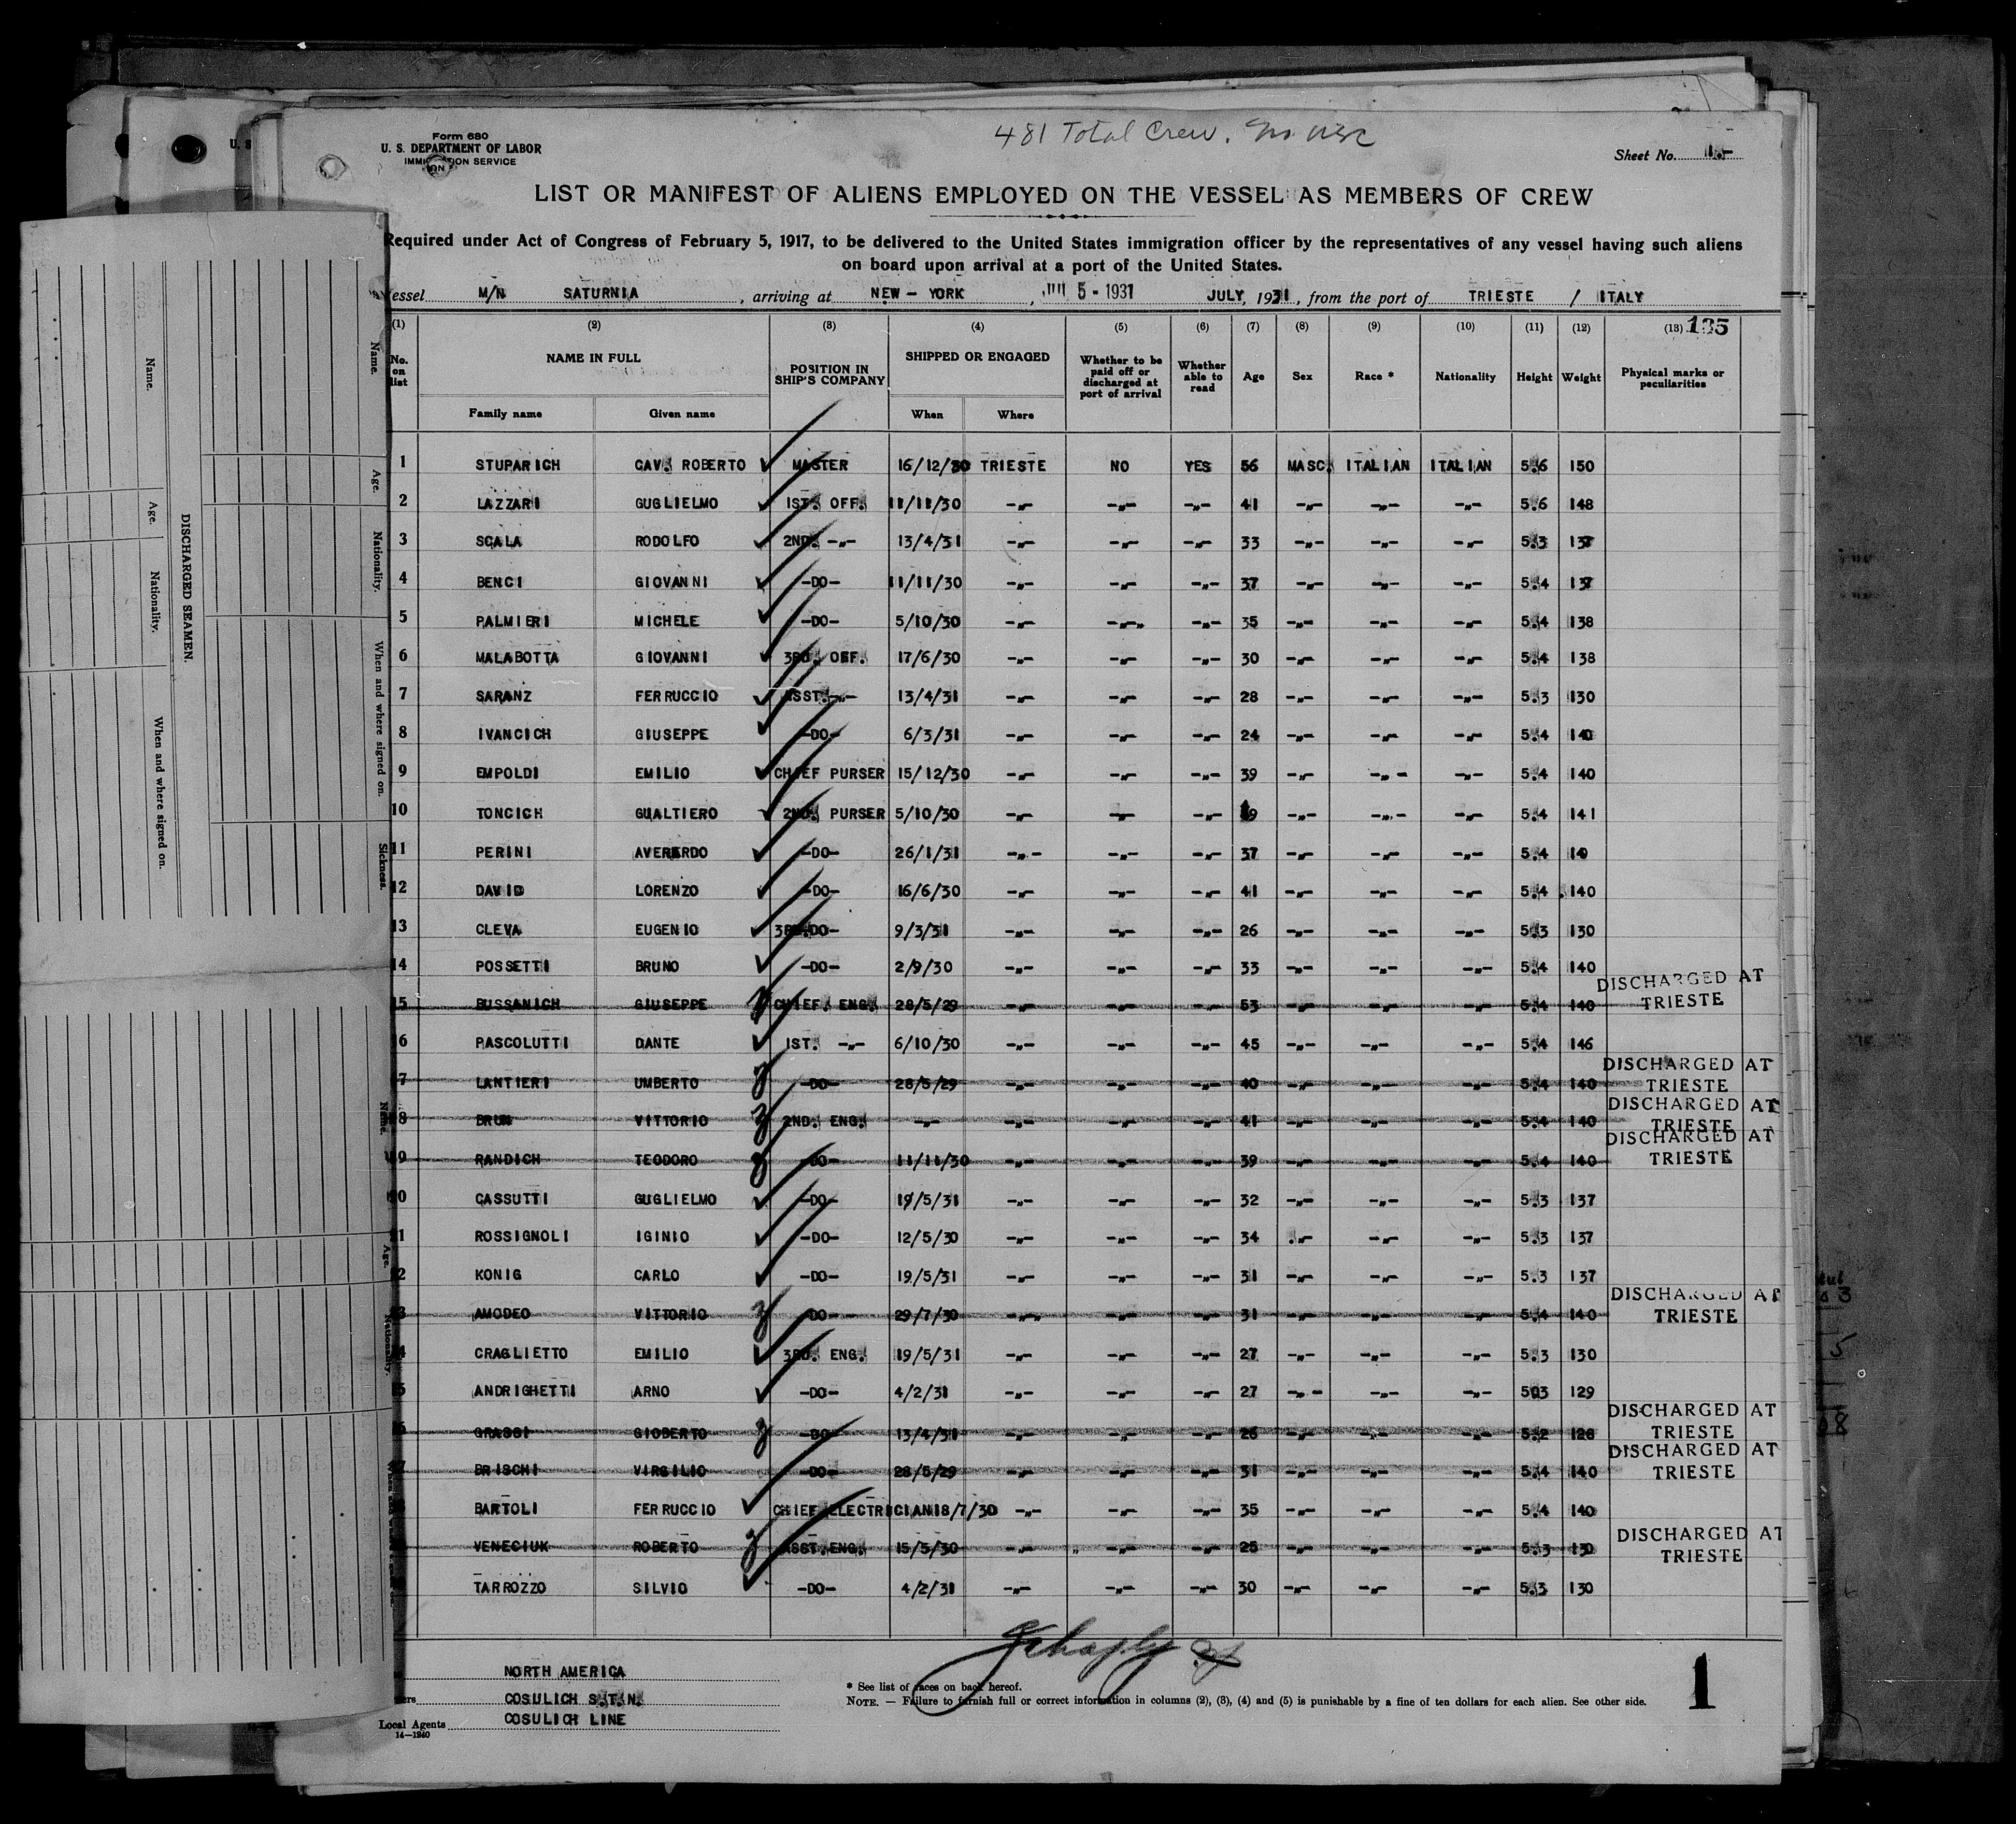 Form 680
U. S. DEPARTMENT OF LABOR
IMMIGRATION SERVICE
481 Total Crew.
Sheet No. 1.-
LIST OR MANIFEST OF ALIENS EMPLOYED ON THE VESSEL AS MEMBERS OF CREW
Required under Act of Congress of February 5, 1917, to be delivered to the United States immigration officer by the representatives of any vessel having such aliens
on board upon arrival at a port of the United States.
Vessel M/N SATURNIA , arriving at NEW-YORK , JUL 5-1931 JULY, 1931, from the port of TRIESTE / ITALY
(1) (2) (3) (4) (5) (6) (7) (8) (9) (10) (11) (12) (13) 135
No. on list NAME IN FULL Family name Given name POSITION IN SHIP'S COMPANY SHIPPED OR ENGAGED When Where Whether to be paid off or discharged at port of arrival Whether able to read Age Sex Race * Nationality Height Weight Physical marks or peculiarities
1 STUPARICH CAV. ROBERTO MASTER 16/12/30 TRIESTE NO YES 56 MASC. ITALIAN ITALIAN 5.6 150
2 LAZZARI GUGLIELMO 1ST. OFF. 11/11/30 -"- -"- -"- 41 -"- -"- -"- 5.6 148
3 SCALA RODOLFO 2ND. -"- 13/4/31 -"- -"- -"- 33 -"- -"- -"- 5.3 137
4 BENCI GIOVANNI -DO- 11/11/30 -"- -"- -"- 37 -"- -"- -"- 5.4 137
5 PALMIERI MICHELE -DO- 5/10/30 -"- -"-" -"- 35 -"- -"- -"- 5.4 138
6 MALABOTTA GIOVANNI 3RD. OFF. 17/6/30 -"- -"- -"- 30 -"- -"- -"- 5.4 138
7 SARANZ FERRUCCIO ASST.-"- 13/4/31 -"- -"- -"- 28 -"- -"- -"- 5.3 130
8 IVANCICH GIUSEPPE -DO- 6/3/31 -"- -"- -"- 24 -"- -"- -"- 5.4 140
9 EMPOLDI EMILIO CHIEF PURSER 15/12/30 -"- -"- -"- 39 -"- -"- -"- 5.4 140
10 TONCICH GUALTIERO 2ND. PURSER 5/10/30 -"- -"- -"- -"- -"- -"- 5.4 141
11 PERINI AVERARDO -DO- 26/1/31 -"- -"- -"- 37 -"- -"- -"- 5.4 140
12 DAVID LORENZO -DO- 16/6/30 -"- -"- -"- 41 -"- -"- -"- 5.4 140
13 CLEVA EUGENIO 3RD.DO- 9/3/31 -"- -"- -"- 26 -"- -"- -"- 5.3 130
14 POSSETTI BRUNO -DO- 2/9/30 -"- -"- -"- 33 -"- -"- -"- 5.4 140
15 BUSSANICH GIUSEPPE CHIEF. ENG. 28/5/29 -"- -"- -"- 53 -"- -"- -"- 5.4 140 DISCHARGED AT TRIESTE
16 PASCOLUTTI DANTE 1ST. -"- 6/10/30 -"- -"- -"- 45 -"- -"- -"- 5.4 146
17 LANTIERI UMBERTO -DO- 28/5/29 -"- -"- -"- 40 -"- -"- -"- 5.4 140 DISCHARGED AT TRIESTE
18 BRUN VITTORIO 2ND. ENG. -"- -"- -"- -"- 41 -"- -"- -"- 5.4 140 DISCHARGED AT TRIESTE
19 RANDICH TEODORO -DO- 11/11/30 -"- -"- -"- 39 -"- -"- -"- 5.4 140 DISCHARGED AT TRIESTE
0 CASSUTTI GUGLIELMO -DO- 19/5/31 -"- -"- -"- 32 -"- -"- -"- 5.3 137
1 ROSSIGNOLI IGINIO -DO- 12/5/30 -"- -"- -"- 34 -"- -"- -"- 5.3 137
2 KONIG CARLO -DO- 19/5/31 -"- -"- -"- 31 -"- -"- -"- 5.3 137
3 AMODEO VITTORIO -DO- 29/7/30 -"- -"- -"- 31 -"- -"- -"- 5.4 140 DISCHARGED AT TRIESTE
4 CRAGLIETTO EMILIO 3RD. ENG. 19/5/31 -"- -"- -"- 27 -"- -"- -"- 5.3 130
5 ANDRIGHETTI ARNO -DO- 4/2/31 -"- -"- -"- 27 -"- -"- -"- 503 129
6 GRASSI GIOBERTO -DO- 13/4/31 -"- -"- -"- 26 -"- -"- -"- 5.2 128 DISCHARGED AT TRIESTE
7 BRISCHI VIRGILIO -DO- 28/5/29 -"- -"- -"- 31 -"- -"- -"- 5.4 140 DISCHARGED AT TRIESTE
8 BARTOLI FERRUCCIO CHIEF ELECTRICIAN 18/7/30 -"- -"- -"- 35 -"- -"- -"- 5.4 140
VENECIUK ROBERTO ASST.ENG. 15/5/30 -"- -"- -"- 25 -"- -"- -"- 5.3 130 DISCHARGED AT TRIESTE
TARROZZO SILVIO -DO- 4/2/31 -"- -"- -"- 30 -"- -"- -"- 5.3 130
NORTH AMERICA
COSULICH S.T.N.
Local Agents COSULICH LINE
14-1240
* See list of races on back hereof.
NOTE. — Failure to furnish full or correct information in columns (2), (3), (4) and (5) is punishable by a fine of ten dollars for each alien. See other side.
1
DISCHARGED SEAMEN.
Name. Age. Nationality. When and where signed on.
Name. Age. Nationality. When and where signed on. Sickness.
Name. Age. Nationality.